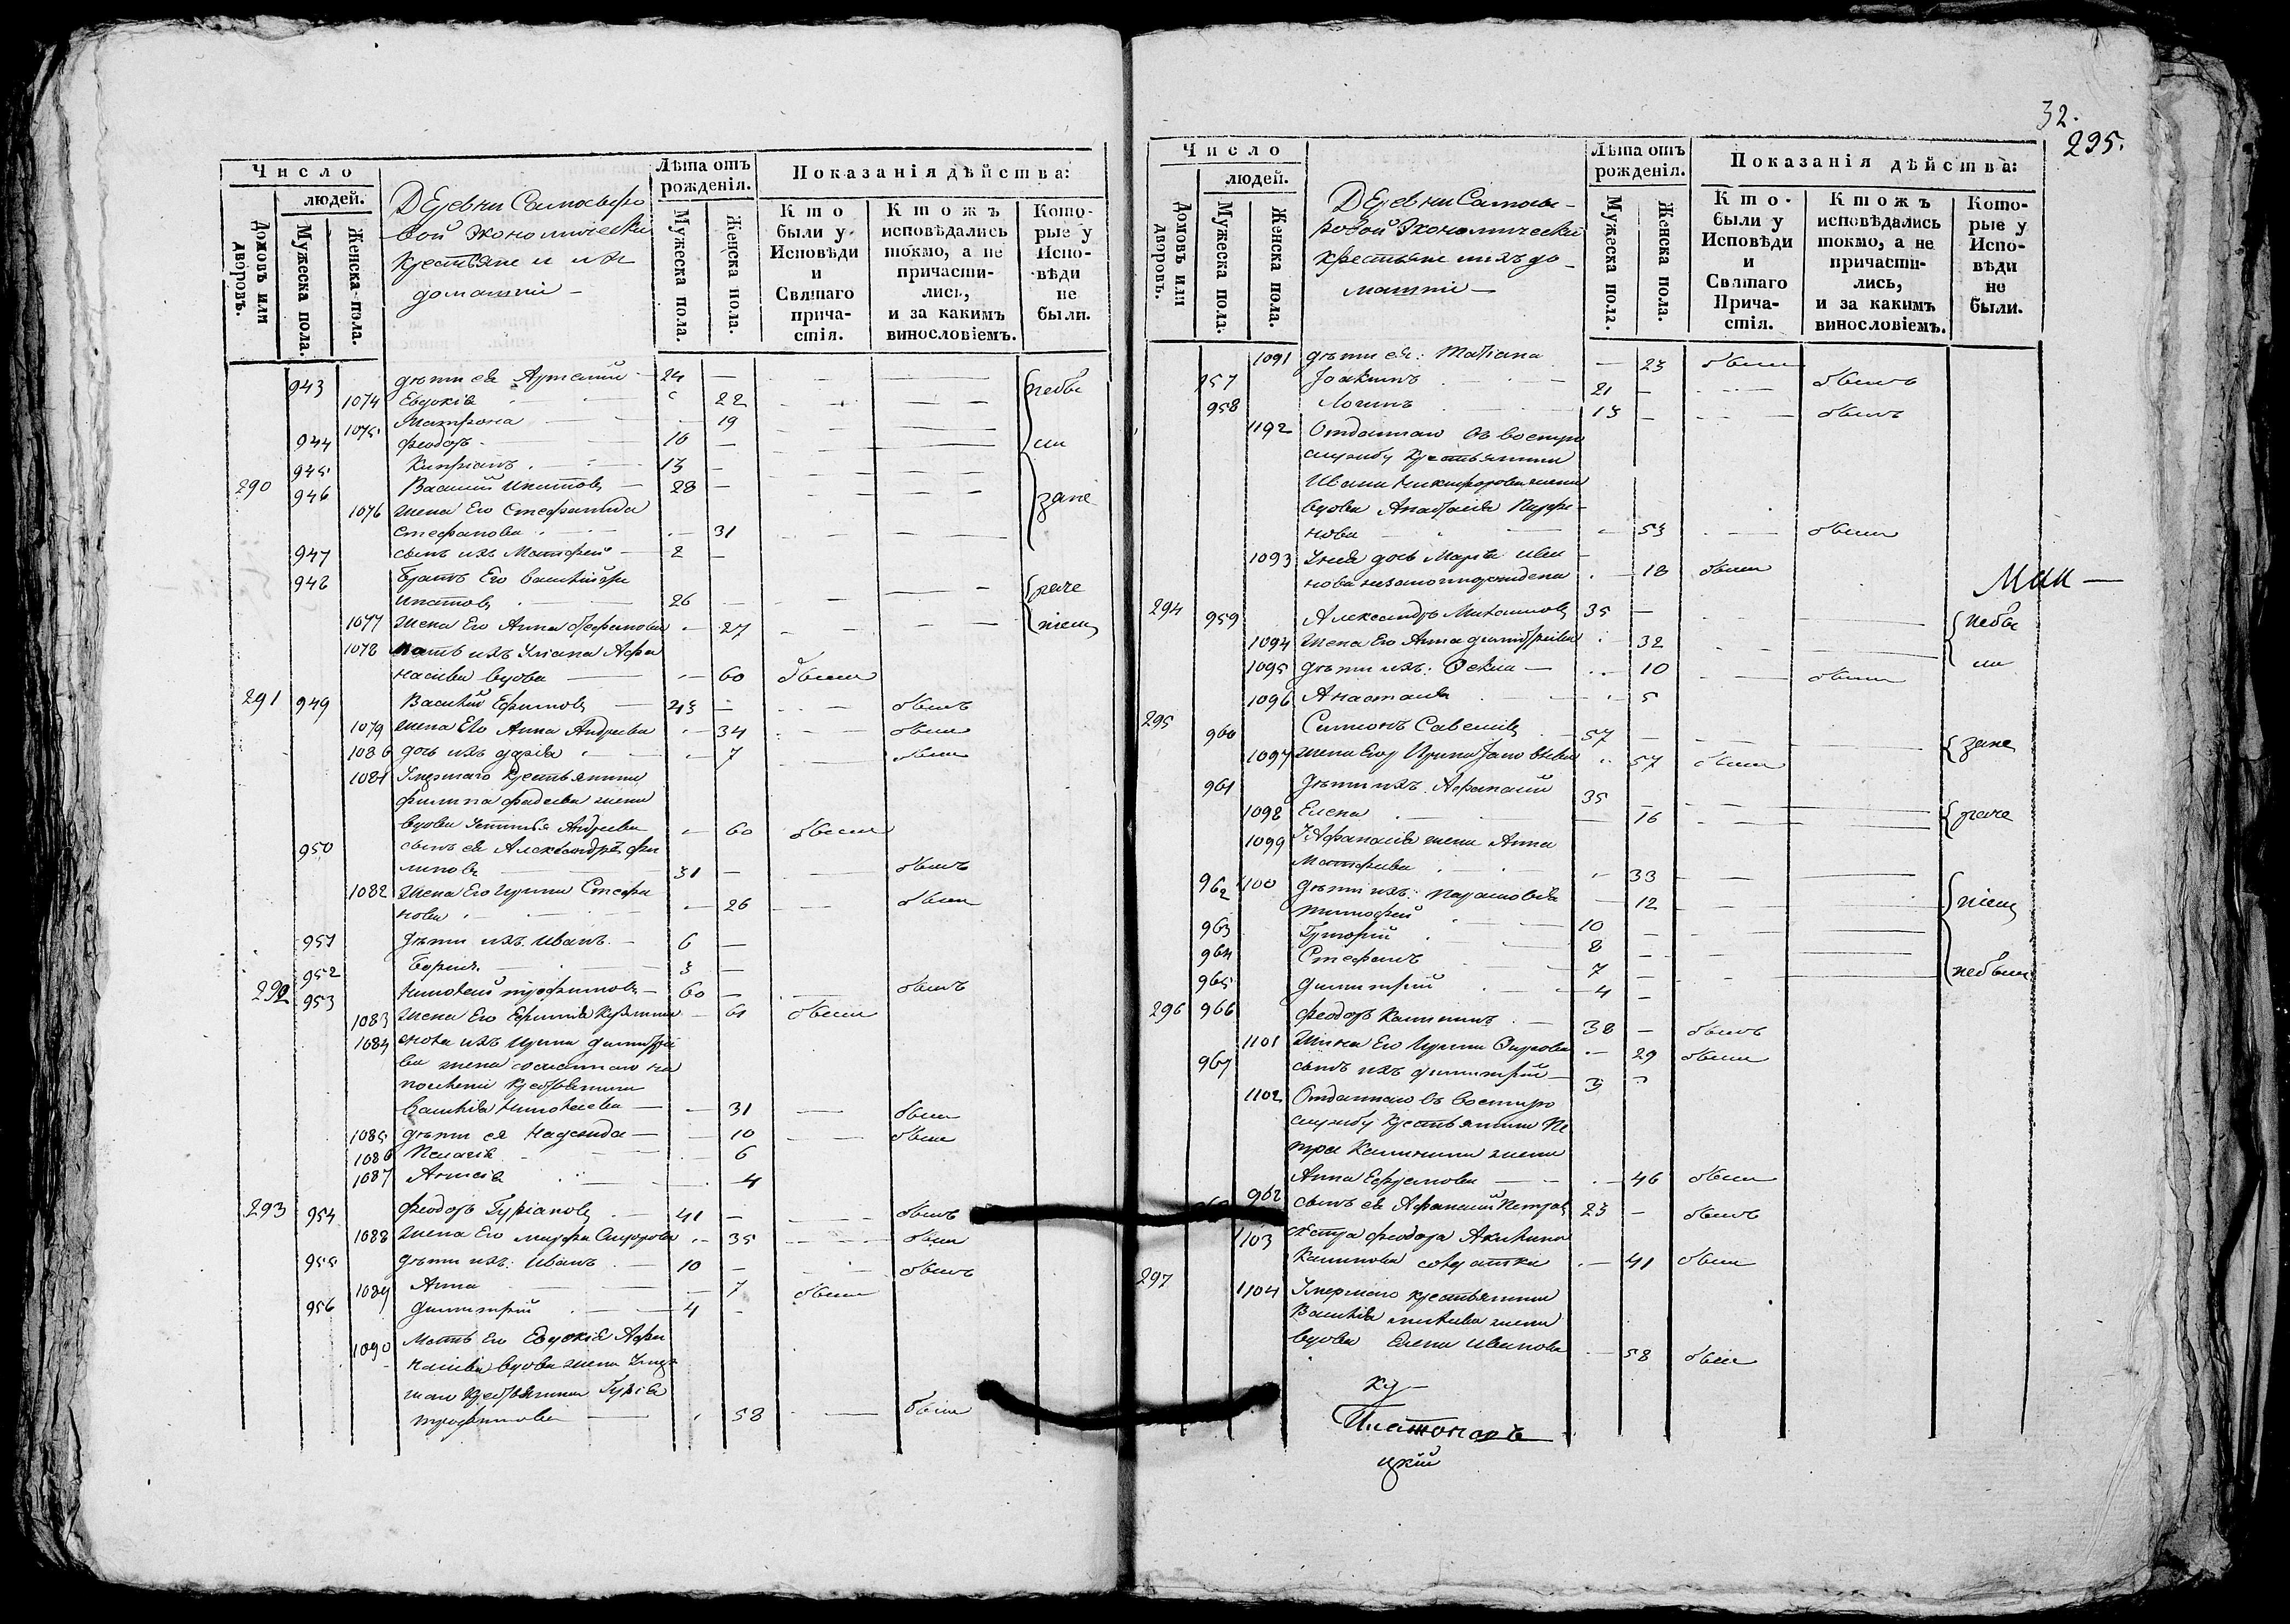 Число
людей.
Домовъ или дворовъ.
Мужеска пола.
Женска пола.
Деревни Самовѣро
вой Экономическіи
крестьяне и ихъ
домашніи —
Лѣта отъ
рожденія.
Мужеска пола.
Женска пола.
Показанія дѣйства:
Кто
были у
Исповѣди
и
Святаго
прича-
стія.
Ктожъ
исповѣдались
токмо, а не
причасти-
лись,
и за какимъ
винословіемъ.
Кото-
рые у
Испо-
вѣди
не
были.
943 дѣти ея Артемій 24 — небы
1074 Евдокія 22
1075 Матрона — 19
944 Феодоръ 16 — ли
945 Кипріанъ 13 —
290 946 Василій Ипатовъ — 28 — заме
1076 жена Его Стефанида
Стефанова — 31
947 сынъ ихъ Матфей — 2 —
948 Братъ Его Василій
Ипатовъ 26 —
1077 жена Его Анна Стефанова — 27
1078 мать ихъ Уліана Афа
насіева вдова — 60 были
291 949 Василій Ефимовъ — 43 — былъ
1079 жена Его Анна Андреева — 34 были
1080 дочь ихъ Дарія 7 были
1081 Умершаго крестьянина
Филипа Фадеева жена
вдова Андреева — 60 были
950 сынъ ея Александръ Фи
липовъ 31 — былъ
1082 жена Его Ирина Стефа
нова — 26 были
951 дѣти ихъ Иванъ — 6 —
952 Борисъ 3 —
292 953 Трофимовъ — 60 — былъ
1083 жена Его Ефимія Кузмина — 61 были
1084 сноха ихъ Ирина Димитріе
ва жена сосланнаго на
поселеніе крестьянина
Василія — 31 были
1085 дѣти ея Надежда — 10 были
1086 Пелагія 6
1087 Анисія 4
293 954 Феодоръ Гуріановъ 41 — былъ
1088 жена Его Марфа Сидорова — 35 были
955 дѣти ихъ: Иванъ 10 — былъ
1089 Анна — 7 были
956 Димитрій 4 —
1090 Мать Его Евдокія Афа
насіева вдова жена Умер
шаго крестьянина Гурія
Трофимова — 58 были
32.
295.
Число
людей.
Домовъ или дворовъ.
Мужеска пола.
Женска пола.
Деревни Самовѣ-
ровой Экономическіи
крестьяне и ихъ до-
машніи —
Лѣта отъ
рожденія.
Мужеска пола.
Женска пола.
Показанія дѣйства:
Кто-
были у
Исповѣди
и
Святаго
Прича-
стія.
Ктожъ
исповѣдались
токмо, а не
причасти-
лись,
и за какимъ
винословіемъ.
Кото-
рые у
Испо-
вѣди
не
были.
1091 дѣти ея: Татіана — 23 были
957 Іоакимъ 21 — былъ
958 Логинъ 13 — былъ
1192 Отданнаго въ военную
службу крестьянина
Ивана Никифорова жена
вдова Анастасія Парфе-
нова — 53 были
1093 У нея дочь Марія Ива
нова 18 были
Мак —
294 959 Александръ 35 — небы
1094 жена Его Анна Димитріева 32
1095 дѣти ихъ: Фекла — 10 были ли
1096 Анастасія 5
295 960 Симонъ Савельевъ 57 — заме
1097 жена Его Ирина Яковлева 57 были
961 Дѣти ихъ Афанасій 35
1098 Елена 16 раче
1099 У Афанасія жена Анна
Матфеева 33
962 1100 дѣти ихъ: Парасковія — 12 ніемъ
Тимофей 10
963 Григорій 8 —
964 Стефанъ 7 — небыли
965 Димитрій 4 —
296 966 Феодоръ Калининъ 38 — былъ
1101 Жена Его Ирина Сидорова — 29 были
967 сынъ ихъ Димитрій — 3
1102 Отданнаго въ военную
службу крестьянина Пе
тра Калинина жена
Анна Ефремова — 46 были
962 сынъ ея Афанасій Петровъ 23 — былъ
1103 сестра Феодора Акилина
Калинова солдатка — 41 были
297 1104 Умершаго крестьянина
Василія жена
вдова Елена Иванова 58 были
Кр —
Платонов
цкій